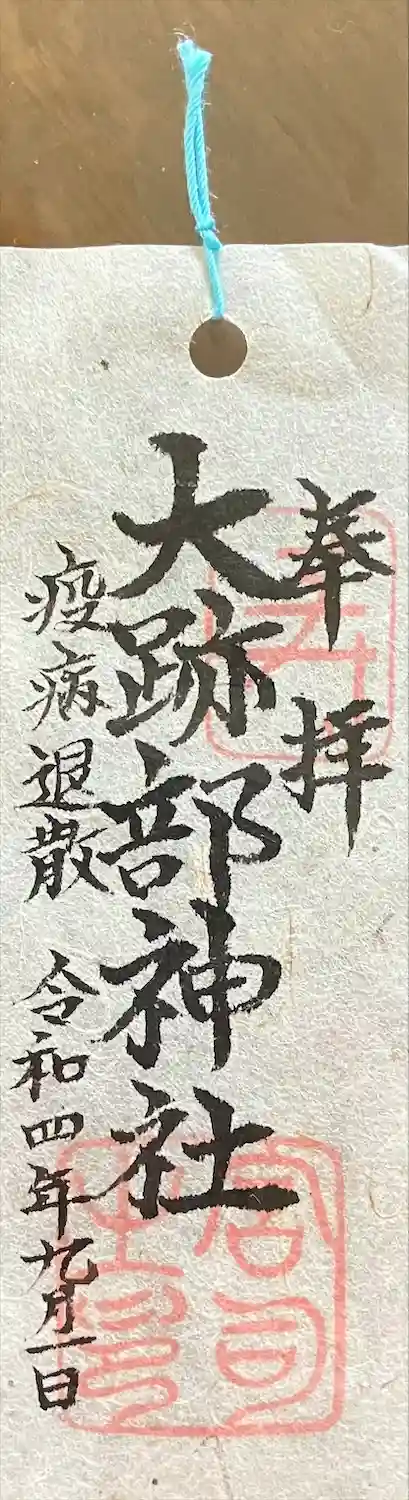 奉拝
大跡部神社
疫病退散 令和四年九月一日
宮司之印